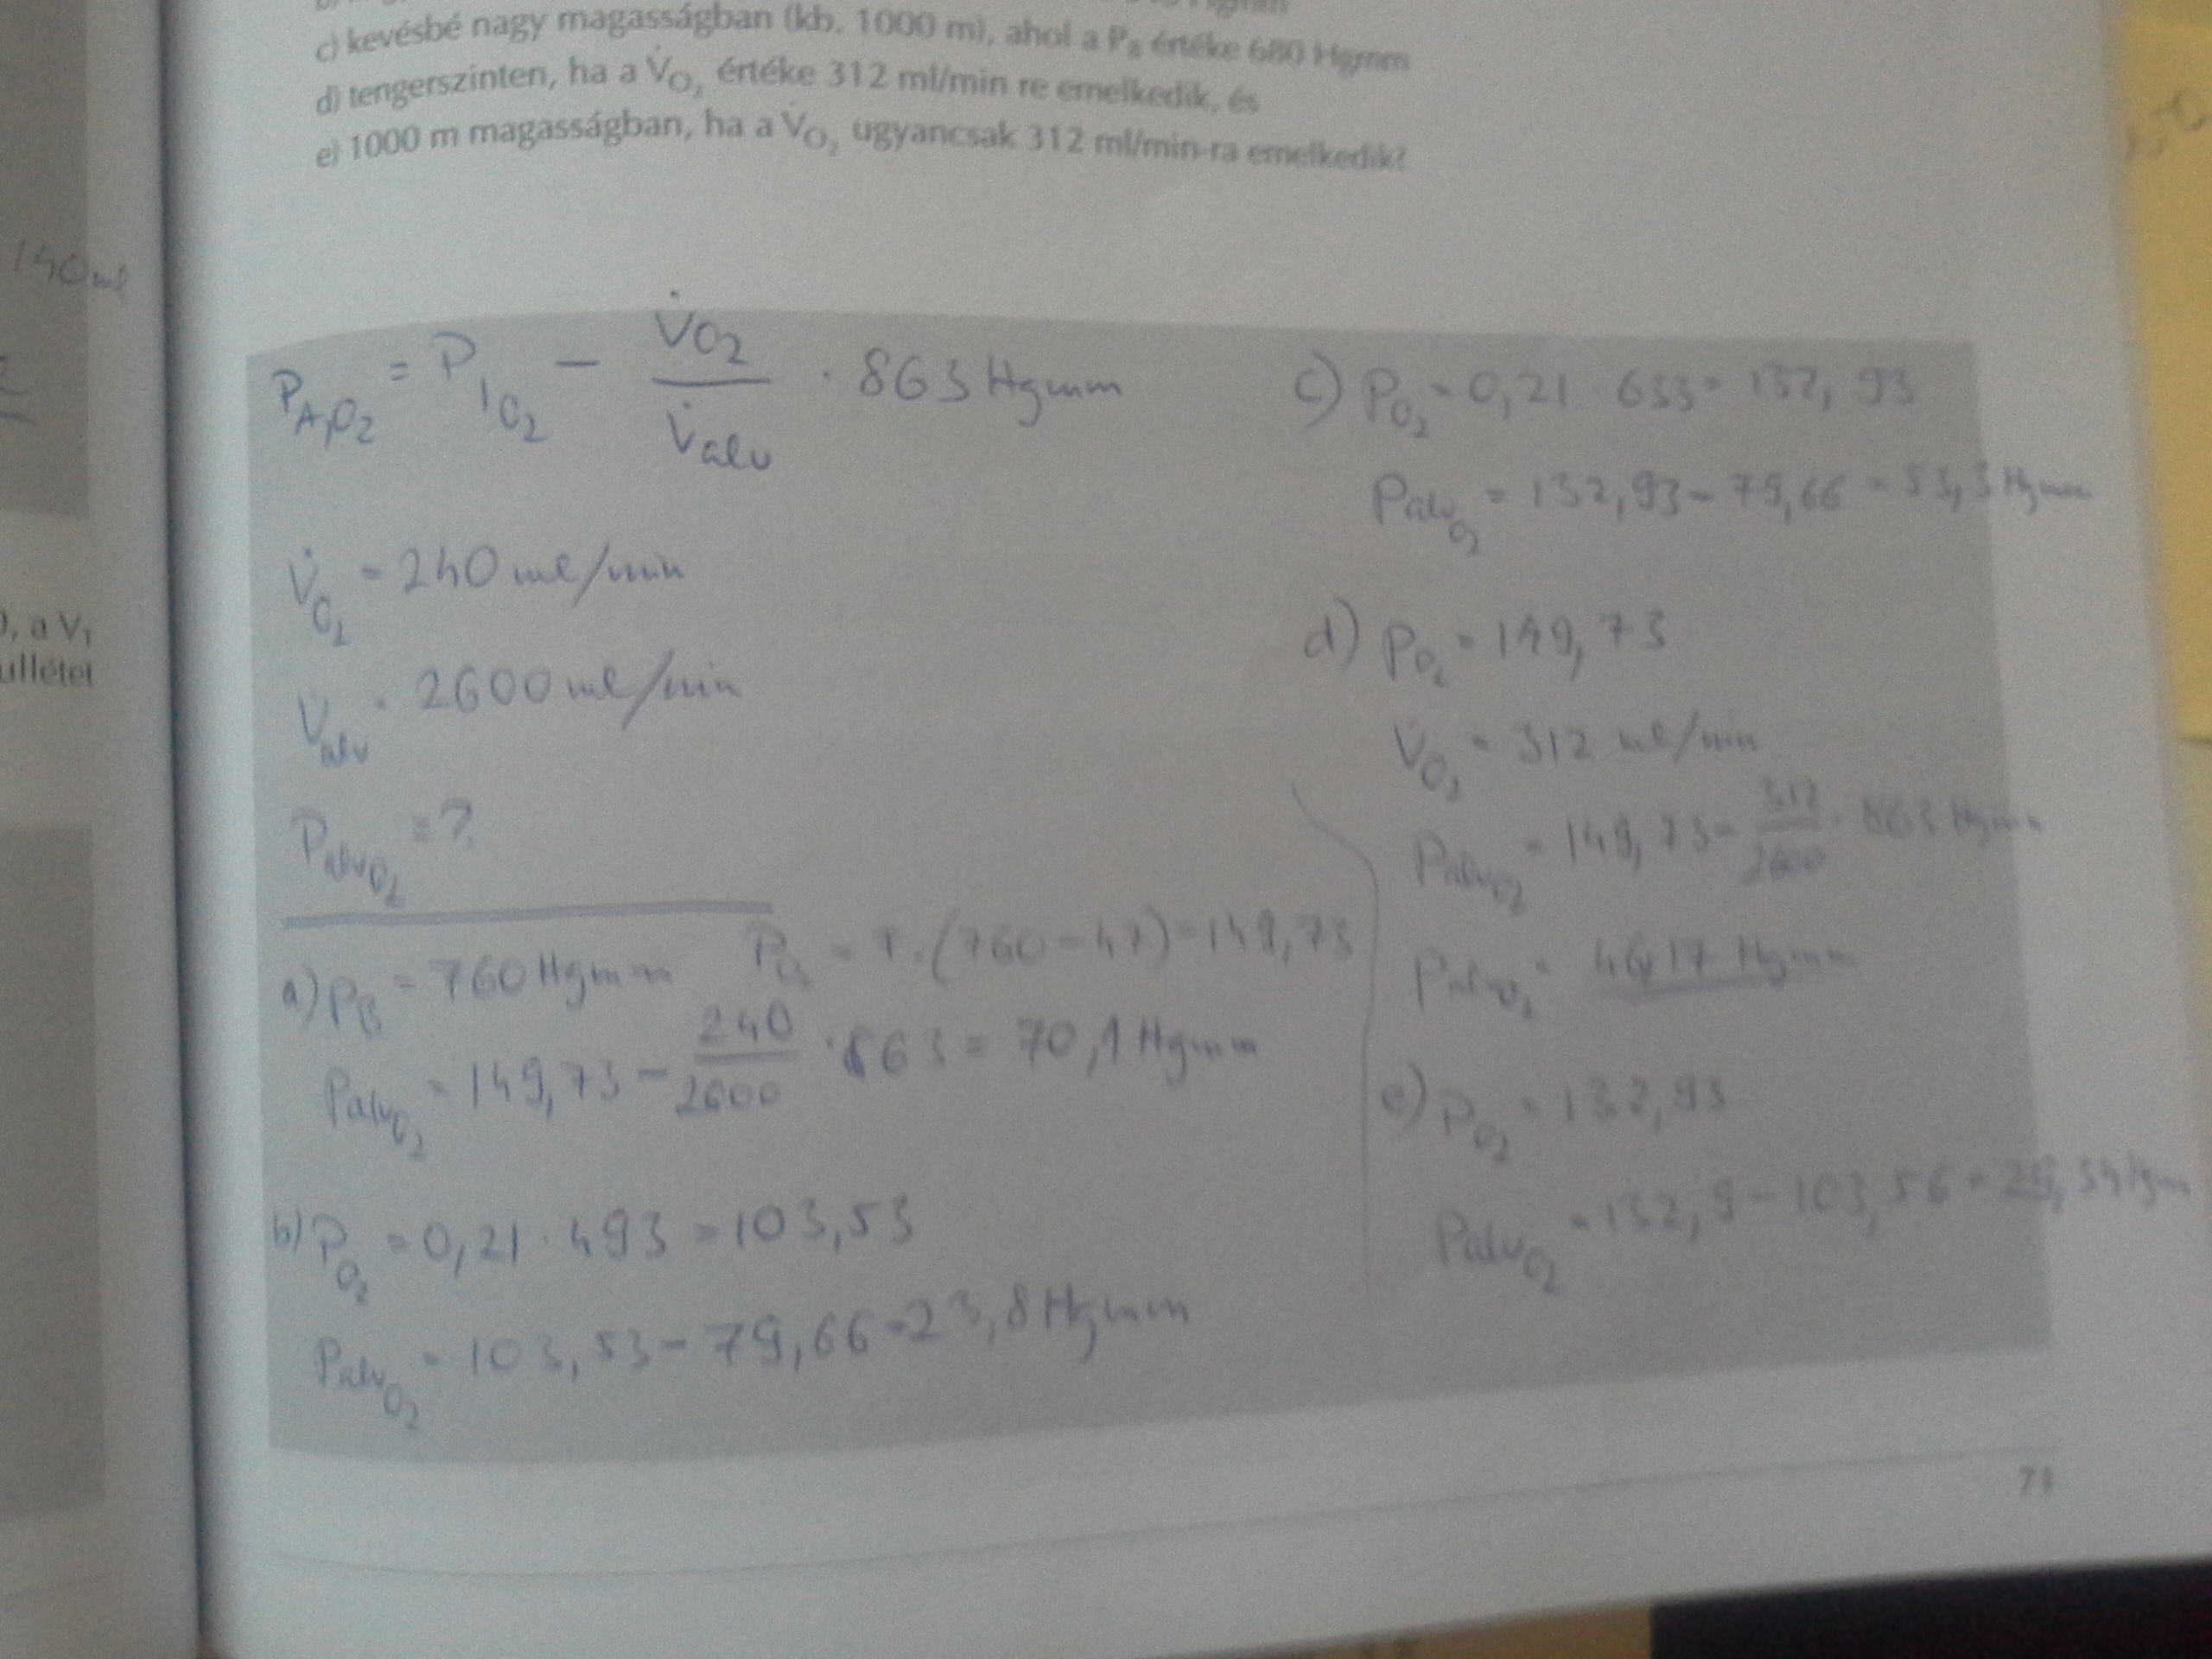 c) kevésbé nagy magasságban (kb. 1000 m), ahol a P_B értéke 680 Hgmm
d) tengerszinten, ha a V̇_O₂ értéke 312 ml/min re emelkedik, és
e) 1000 m magasságban, ha a V̇_O₂ ugyancsak 312 ml/min-ra emelkedik?
140 ml
, a V_T
ullétet
P_A,O₂ = P_I_O₂ - V̇_O₂ / V̇_alv · 863 Hgmm
V̇_O₂ = 240 ml/min
V̇_alv = 2600 ml/min
P_alv_O₂ = ?
a) P_B = 760 Hgmm P_O₂ = · (760 - 47) = 149,73
P_alv_O₂ = 149,73 - 240 / 2600 · 863 = 70,1 Hgmm
b) P_O₂ = 0,21 · 493 = 103,53
P_alv_O₂ = 103,53 - 79,66 = 23,8 Hgmm
c) P_O₂ = 0,21 · 633 = 132,93
P_alv_O₂ = 132,93 - 79,66 = 53,3 Hgmm
d) P_O₂ = 149,73
V̇_O₂ = 312 ml/min
P_alv_O₂ = 149,73 - 312 / 2600 · 863 Hgmm
P_alv_O₂ = 46,17 Hgmm
e) P_O₂ = 132,93
P_alv_O₂ = 132,9 - 103,56 = 29,34 Hgmm
71